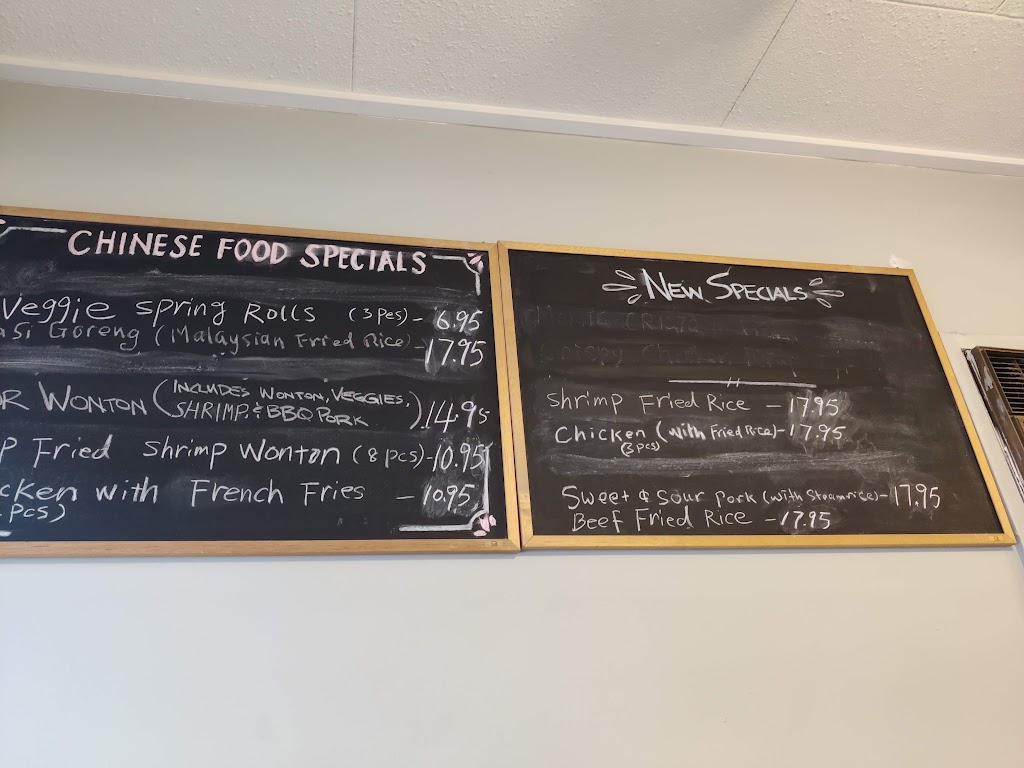 CHINESE FOOD SPECIALS
Veggie Spring Rolls (3 Pcs) - 6.95
Si Goreng (Malaysian Fried Rice) - 17.95
OR WONTON (INCLUDES WONTON, VEGGIES, SHRIMP, & BBQ PORK) 14.95
P Fried Shrimp Wonton (8 pcs) - 10.95
cken with French Fries - 10.95
Pcs)
NEW SPECIALS
Shrimp Fried Rice - 17.95
Chicken (with Fried Rice) - 17.95
(3 pcs)
Sweet & Sour Pork (with Steam rice) - 17.95
Beef Fried Rice - 17.95